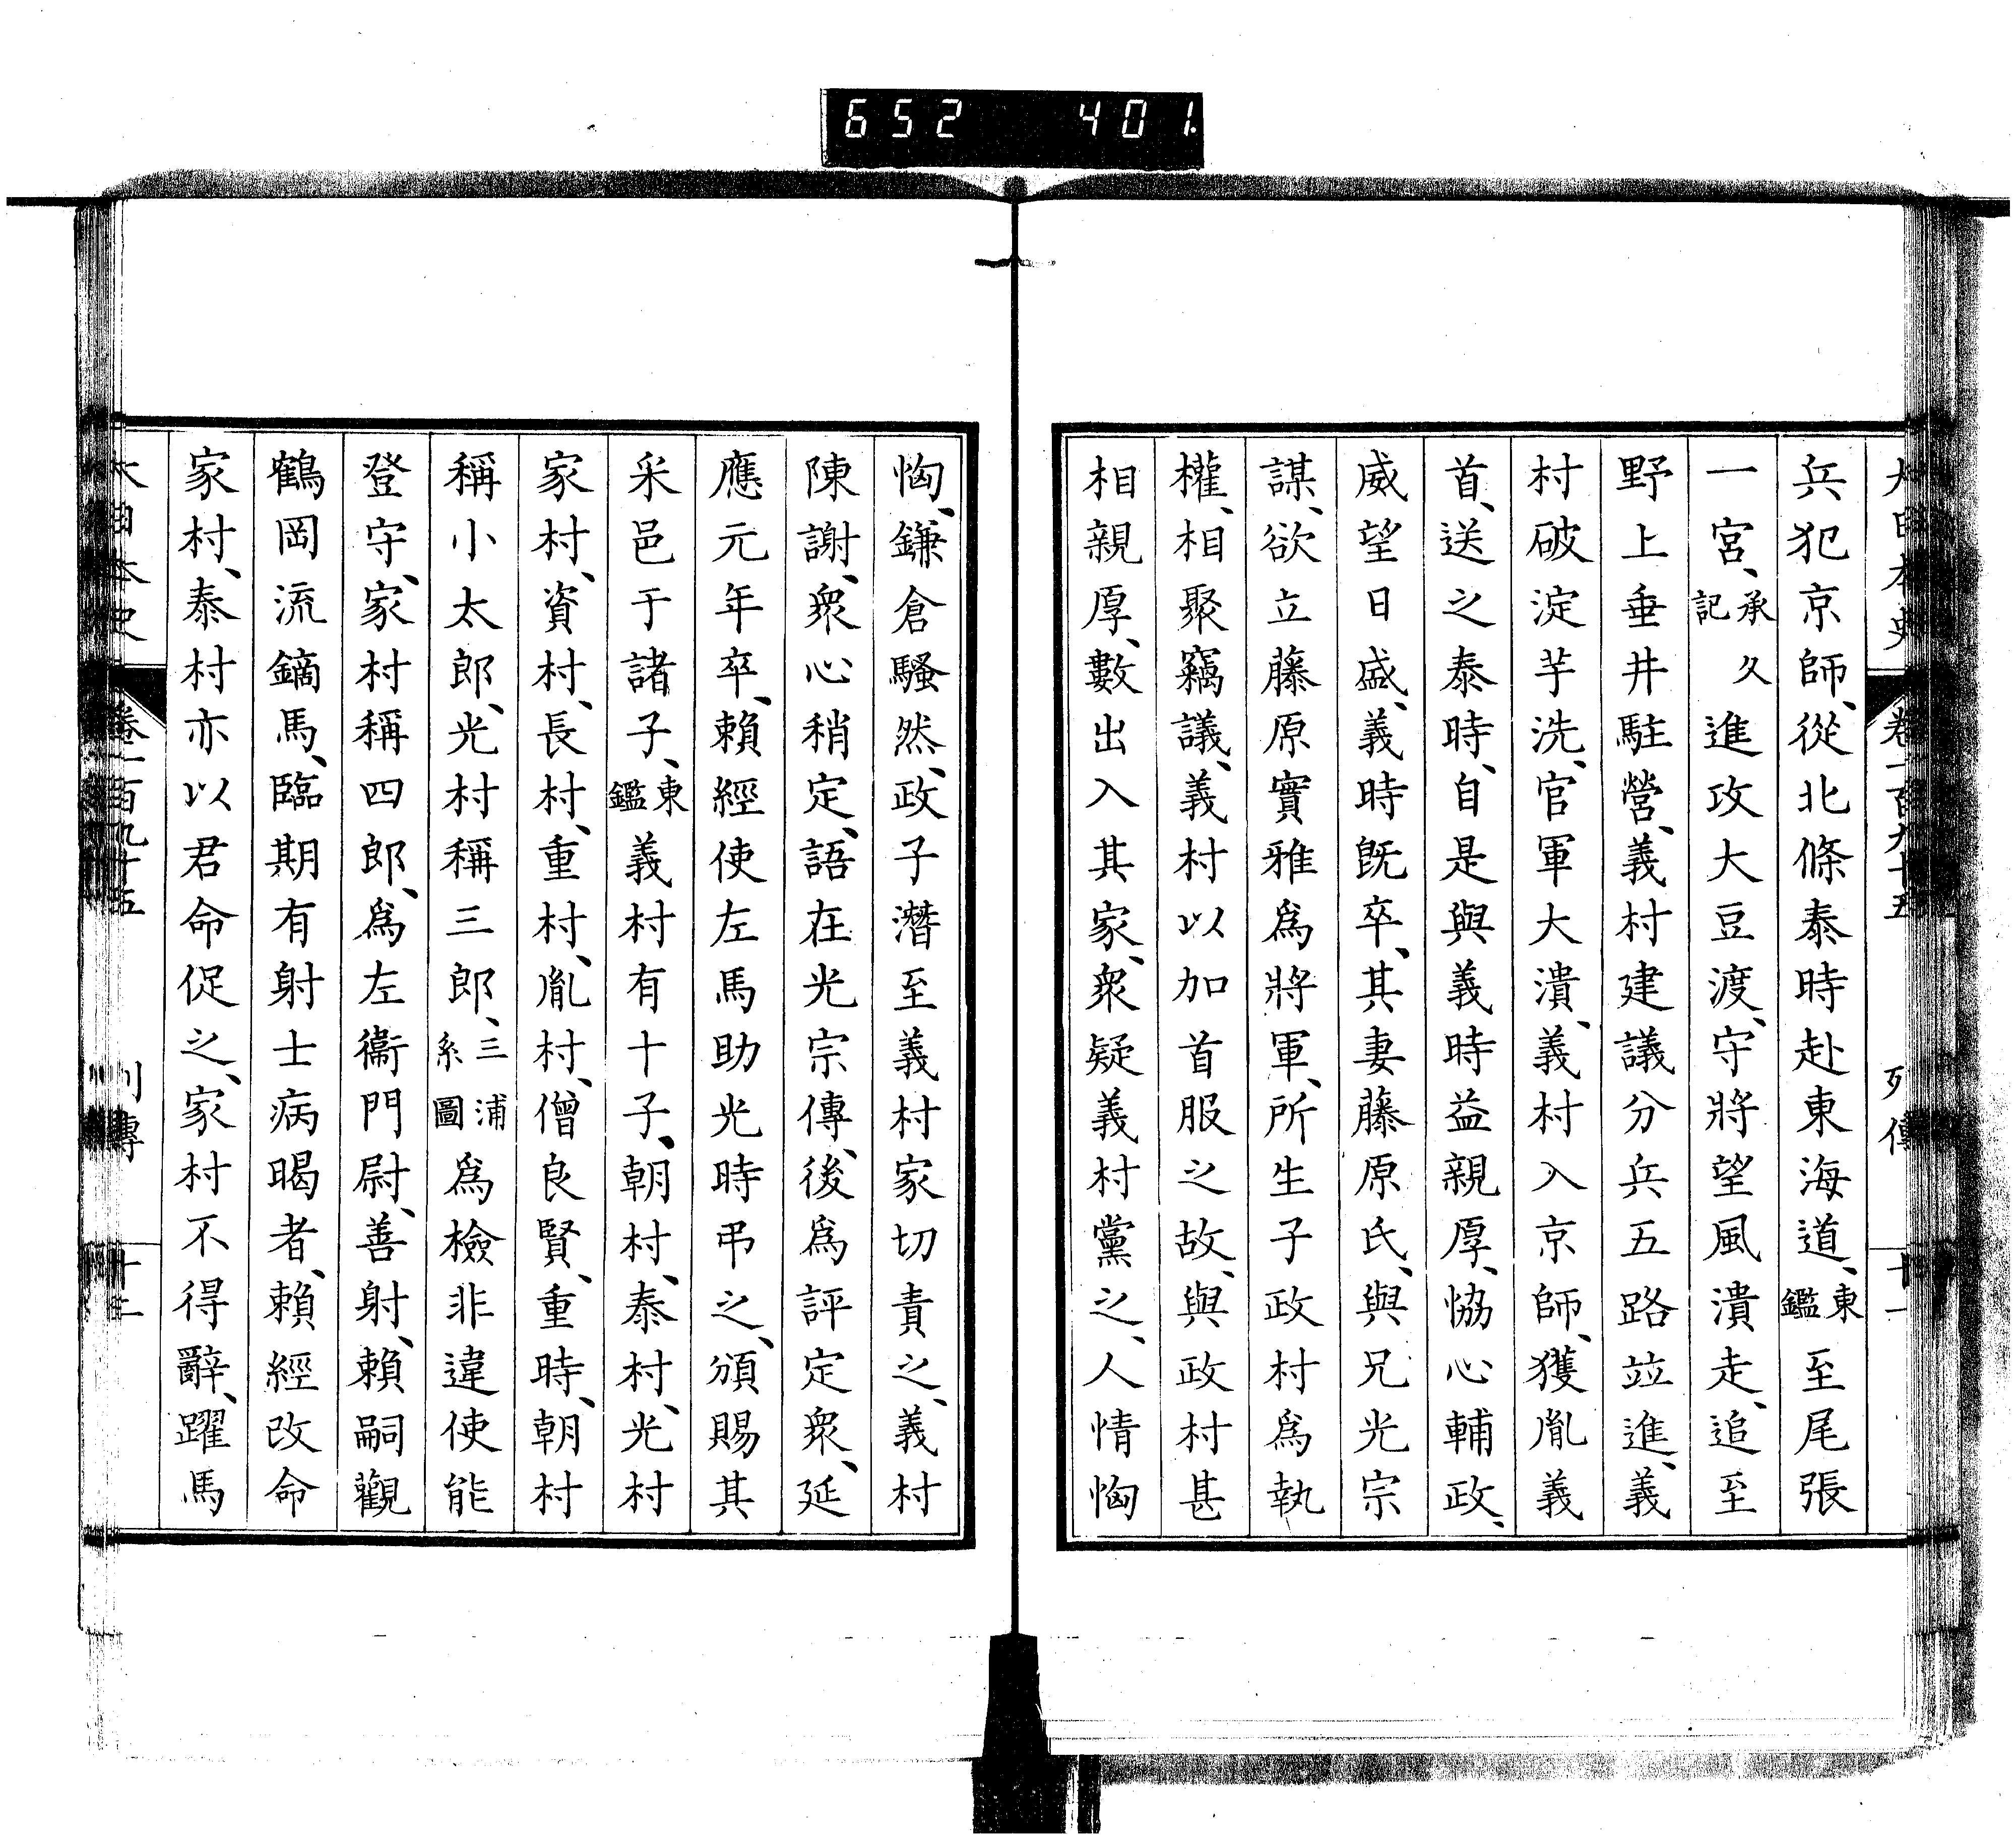 652 401.
大日本史 卷一百九十五 列傳 十一
兵犯京師、從北條泰時赴東海道、東鑑至尾張
一宮、承久記進攻大豆渡、守將望風潰走、追至
野上垂井駐營、義村建議分兵五路竝進、義
村破淀芋洗、官軍大潰、義村入京師、獲胤義
首、送之泰時、自是與義時益親厚、恊心輔政、
威望日盛、義時旣卒、其妻藤原氏、與兄光宗
謀、欲立藤原實雅爲將軍、所生子政村爲執
權、相聚竊議、義村以加首服之故、與政村甚
相親厚、數出入其家、衆疑義村黨之、人情恟
恟、鎌倉騷然、政子潛至義村家切責之、義村
陳謝、衆心稍定、語在光宗傳、後爲評定衆、延
應元年卒、賴經使左馬助光時弔之、頒賜其
采邑于諸子、東鑑義村有十子、朝村、泰村、光村
家村、資村、長村、重村、胤村、僧良賢、重時、朝村
稱小太郎、光村稱三郎、三浦系圖爲檢非違使能
登守、家村稱四郎、爲左衞門尉、善射、賴嗣觀
鶴岡流鏑馬、臨期有射士病暍者、賴經改命
家村、泰村亦以君命促之、家村不得辭、躍馬
大日本史 卷一百九十五 列傳 十二